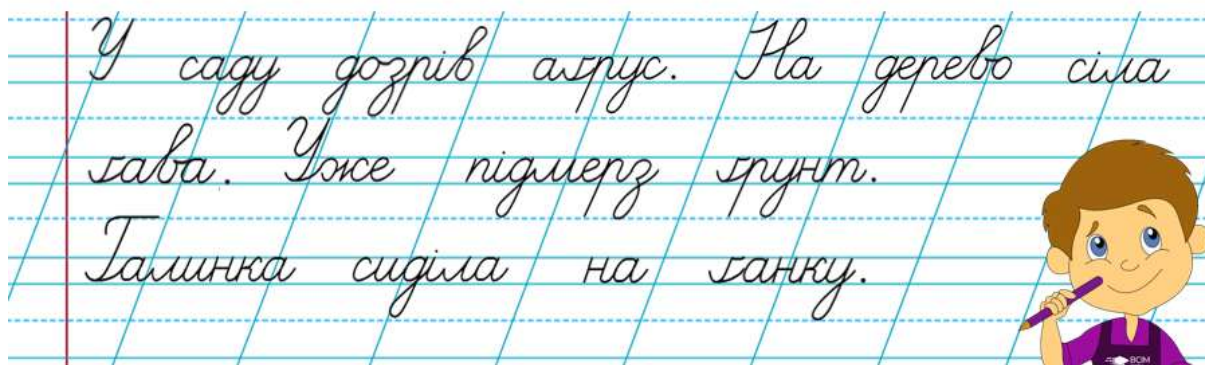 У саду дозрів аґрус. На дерево сіла
ґава. Уже підмерз ґрунт.
Галинка сиділа на ґанку.
ВСІМ